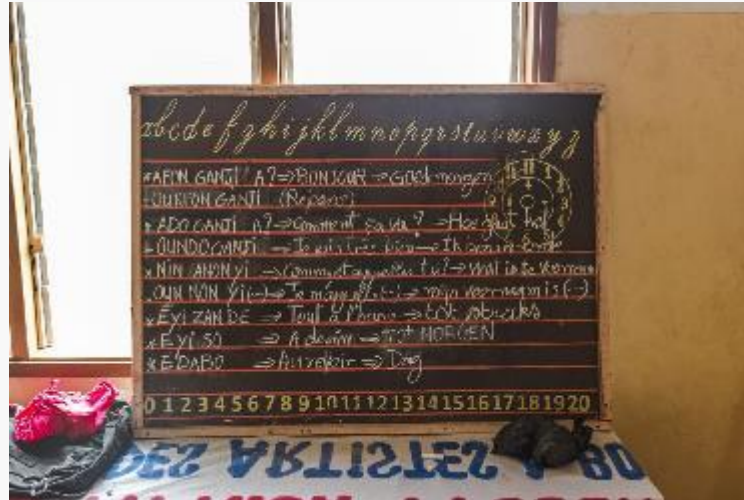 abcdefghijklmnopqrstuvwxyz
*AFON GANJI A? => BONJOUR => Goed morgen
-OUN FON GANJI (Réponse)
*ADO GANJI A? => Comment ça va? => Hoe gaat het
-OUNDO GANJI => Je suis très bien =>
*NIN ANON YI => Comment appelles tu? => Wat is je voornaam
-OUN NON Yi (-) => Je m'appelle (-) => mijn voornaam is (-)
*EYI ZAN DE => Tout à l'heure => tot
*EYI SO => A demain => TOT MORGEN
*E DABO => Au revoir => Dag
0 1 2 3 4 5 6 7 8 9 10 11 12 13 14 15 16 17 18 19 20